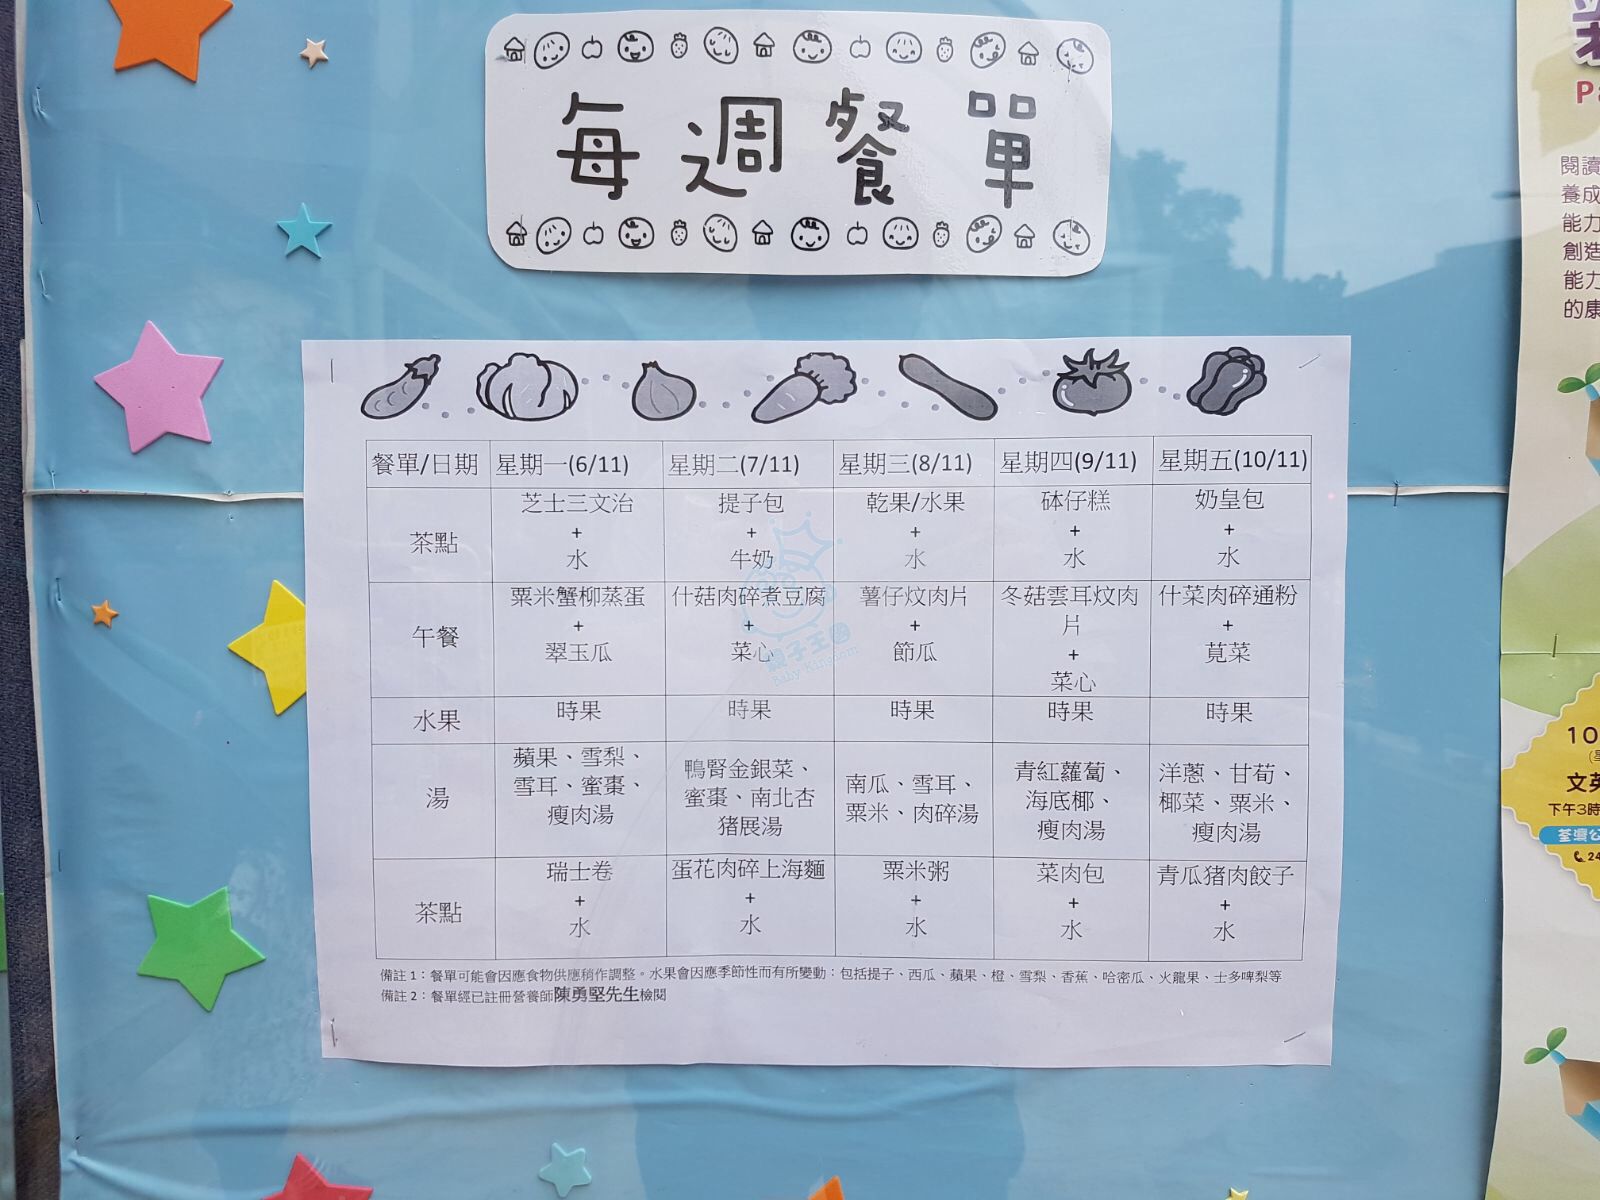 每週餐單
餐單/日期 星期一(6/11) 星期二(7/11) 星期三(8/11) 星期四(9/11) 星期五(10/11)
茶點
芝士三文治
+
水
提子包
+
牛奶
乾果/水果
+
水
砵仔糕
+
水
奶皇包
+
水
午餐
粟米蟹柳蒸蛋
+
翠玉瓜
什菇肉碎煮豆腐
+
菜心
薯仔炆肉片
+
節瓜
冬菇雲耳炆肉
片
+
菜心
什菜肉碎通粉
+
莧菜
水果 時果 時果 時果 時果 時果
湯
蘋果、雪梨、
雪耳、蜜棗、
瘦肉湯
鴨腎金銀菜、
蜜棗、南北杏
猪展湯
南瓜、雪耳、
粟米、肉碎湯
青紅蘿蔔、
海底椰、
瘦肉湯
洋蔥、甘荀、
椰菜、粟米、
瘦肉湯
茶點
瑞士卷
+
水
蛋花肉碎上海麵
+
水
粟米粥
+
水
菜肉包
+
水
青瓜猪肉餃子
+
水
備註 1：餐單可能會因應食物供應稍作調整。水果會因應季節性而有所變動：包括提子、西瓜、蘋果、橙、雪梨、香蕉、哈密瓜、火龍果、士多啤梨等
備註 2：餐單經已註冊營養師陳勇堅先生檢閱
親子王國
Baby Kingdom
閱讀
養成
能力
創造
能力
的康
10
文英
下午3時
荃灣公
24